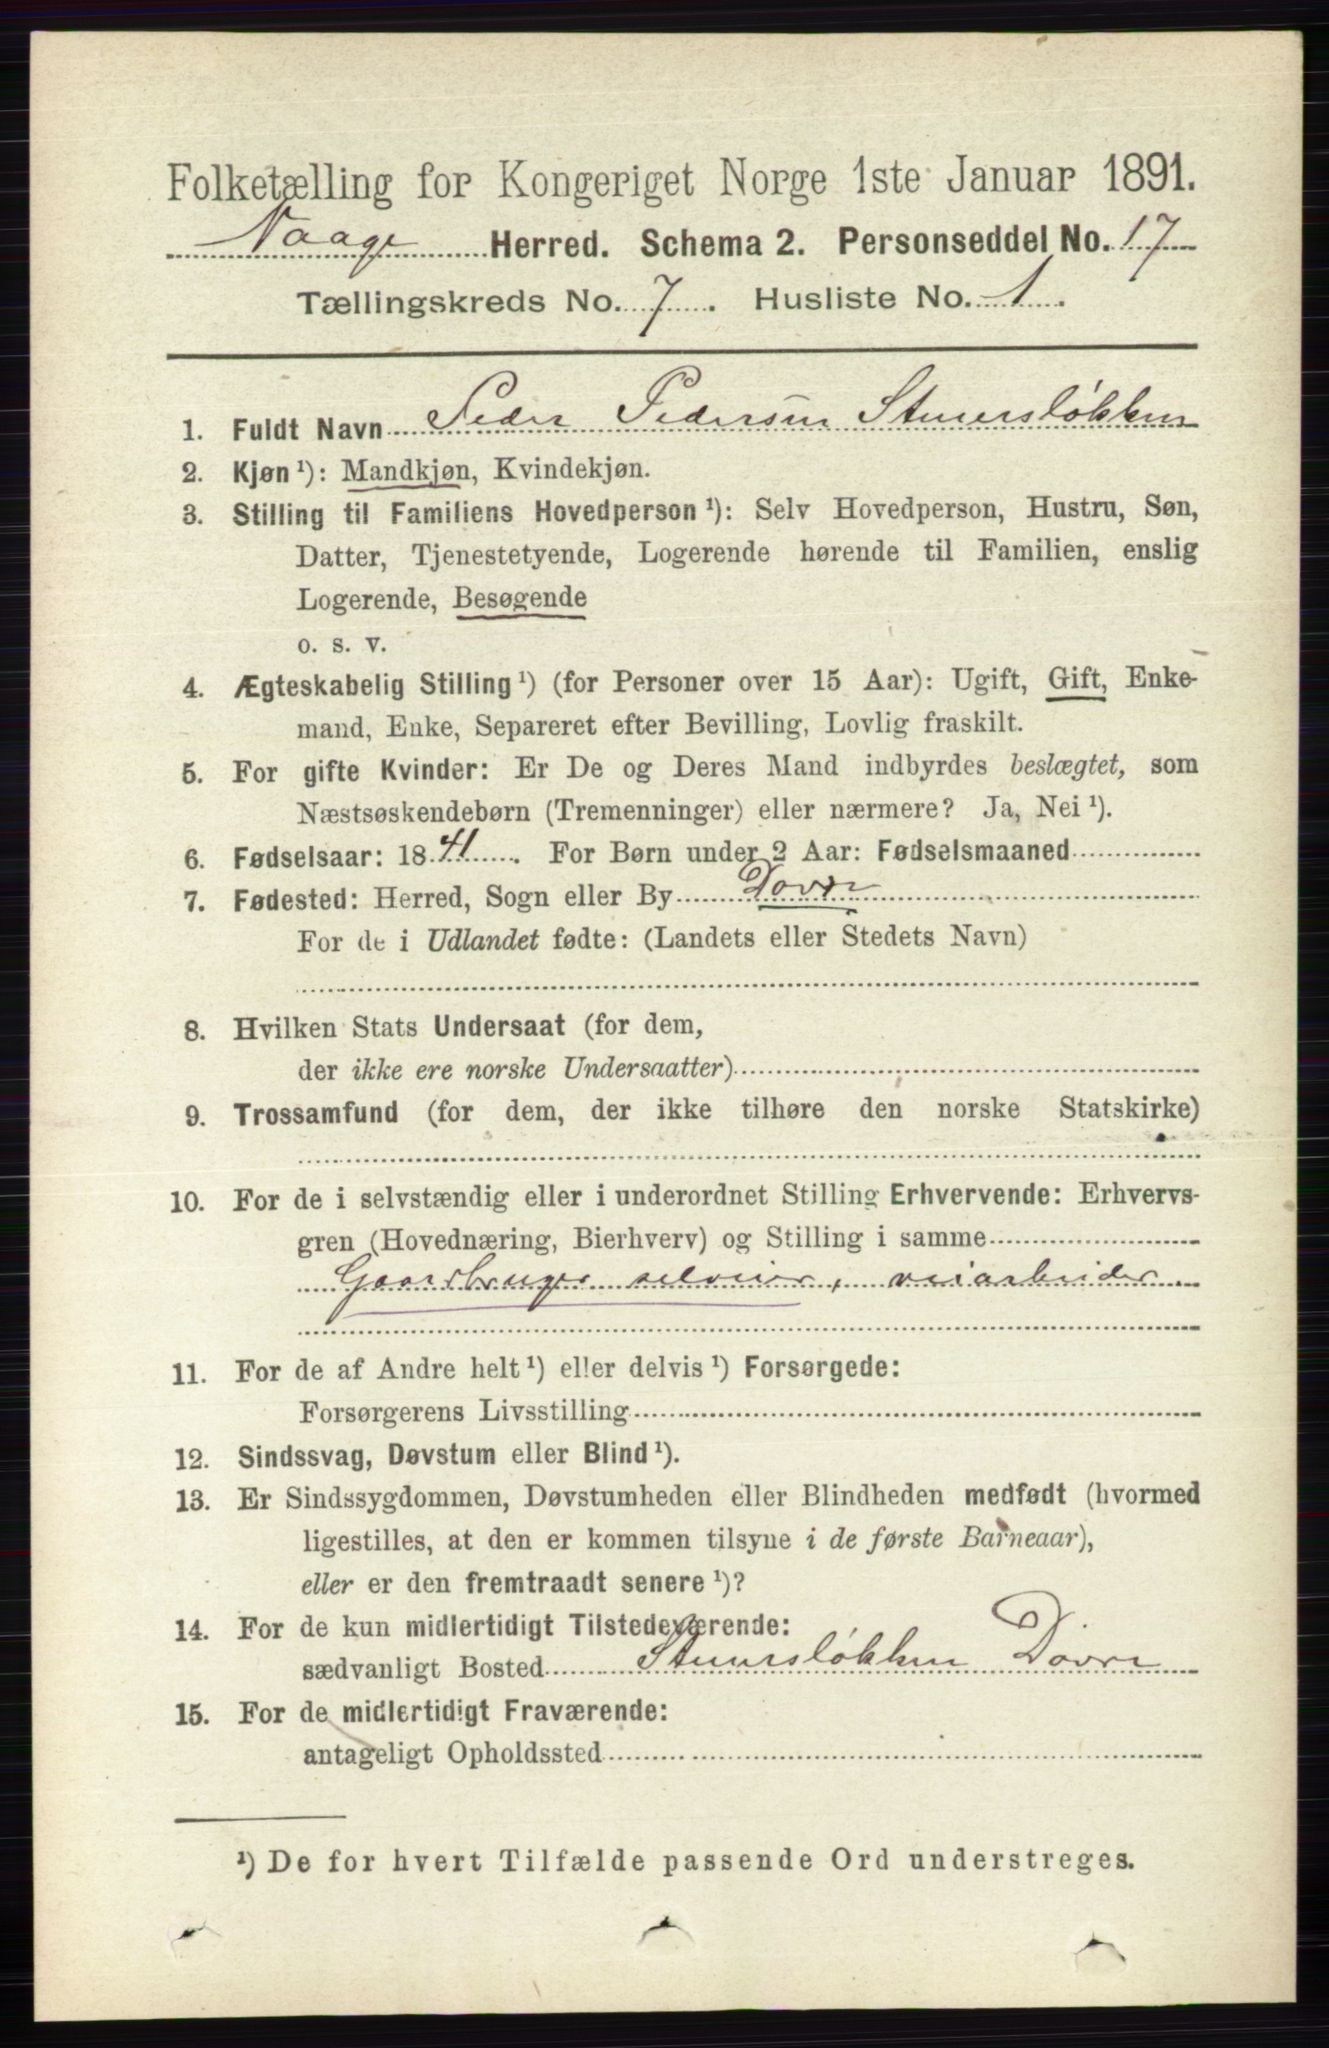 Folketælling for Kongeriget Norge 1ste Januar 1891.
Vaage Herred. Schema 2. Personseddel No. 17
Tællingskreds No. 7. Husliste No. 1.
1. Fuldt Navn Peder Pedersen Stuursløkken
2. Kjøn ¹): Mandkjøn, Kvindekjøn.
3. Stilling til Familiens Hovedperson ¹): Selv Hovedperson, Hustru, Søn,
Datter, Tjenestetyende, Logerende hørende til Familien, enslig
Logerende, Besøgende
o. s. v.
4. Ægteskabelig Stilling ¹) (for Personer over 15 Aar): Ugift, Gift, Enke-
mand, Enke, Separeret efter Bevilling, Lovlig fraskilt.
5. For gifte Kvinder: Er De og Deres Mand indbyrdes beslægtet, som
Næstsøskendebørn (Tremenninger) eller nærmere? Ja, Nei ¹).
6. Fødselsaar: 1841. For Børn under 2 Aar: Fødselsmaaned
7. Fødested: Herred, Sogn eller By Dovre
For de i Udlandet fødte: (Landets eller Stedets Navn)
8. Hvilken Stats Undersaat (for dem,
der ikke ere norske Undersaatter)
9. Trossamfund (for dem, der ikke tilhøre den norske Statskirke)
10. For de i selvstændig eller i underordnet Stilling Erhvervende: Erhvervs-
gren (Hovednæring, Bierhverv) og Stilling i samme
Gaardbruger selveier, veiarbeider.
11. For de af Andre helt ¹) eller delvis ¹) Forsørgede:
Forsørgerens Livsstilling
12. Sindssvag, Døvstum eller Blind ¹).
13. Er Sindssygdommen, Døvstumheden eller Blindheden medfødt (hvormed
ligestilles, at den er kommen tilsyne i de første Barneaar),
eller er den fremtraadt senere ¹)?
14. For de kun midlertidigt Tilstedeværende:
sædvanligt Bosted Stuursløkken Dovre
15. For de midlertidigt Fraværende:
antageligt Opholdssted
¹) De for hvert Tilfælde passende Ord understreges.